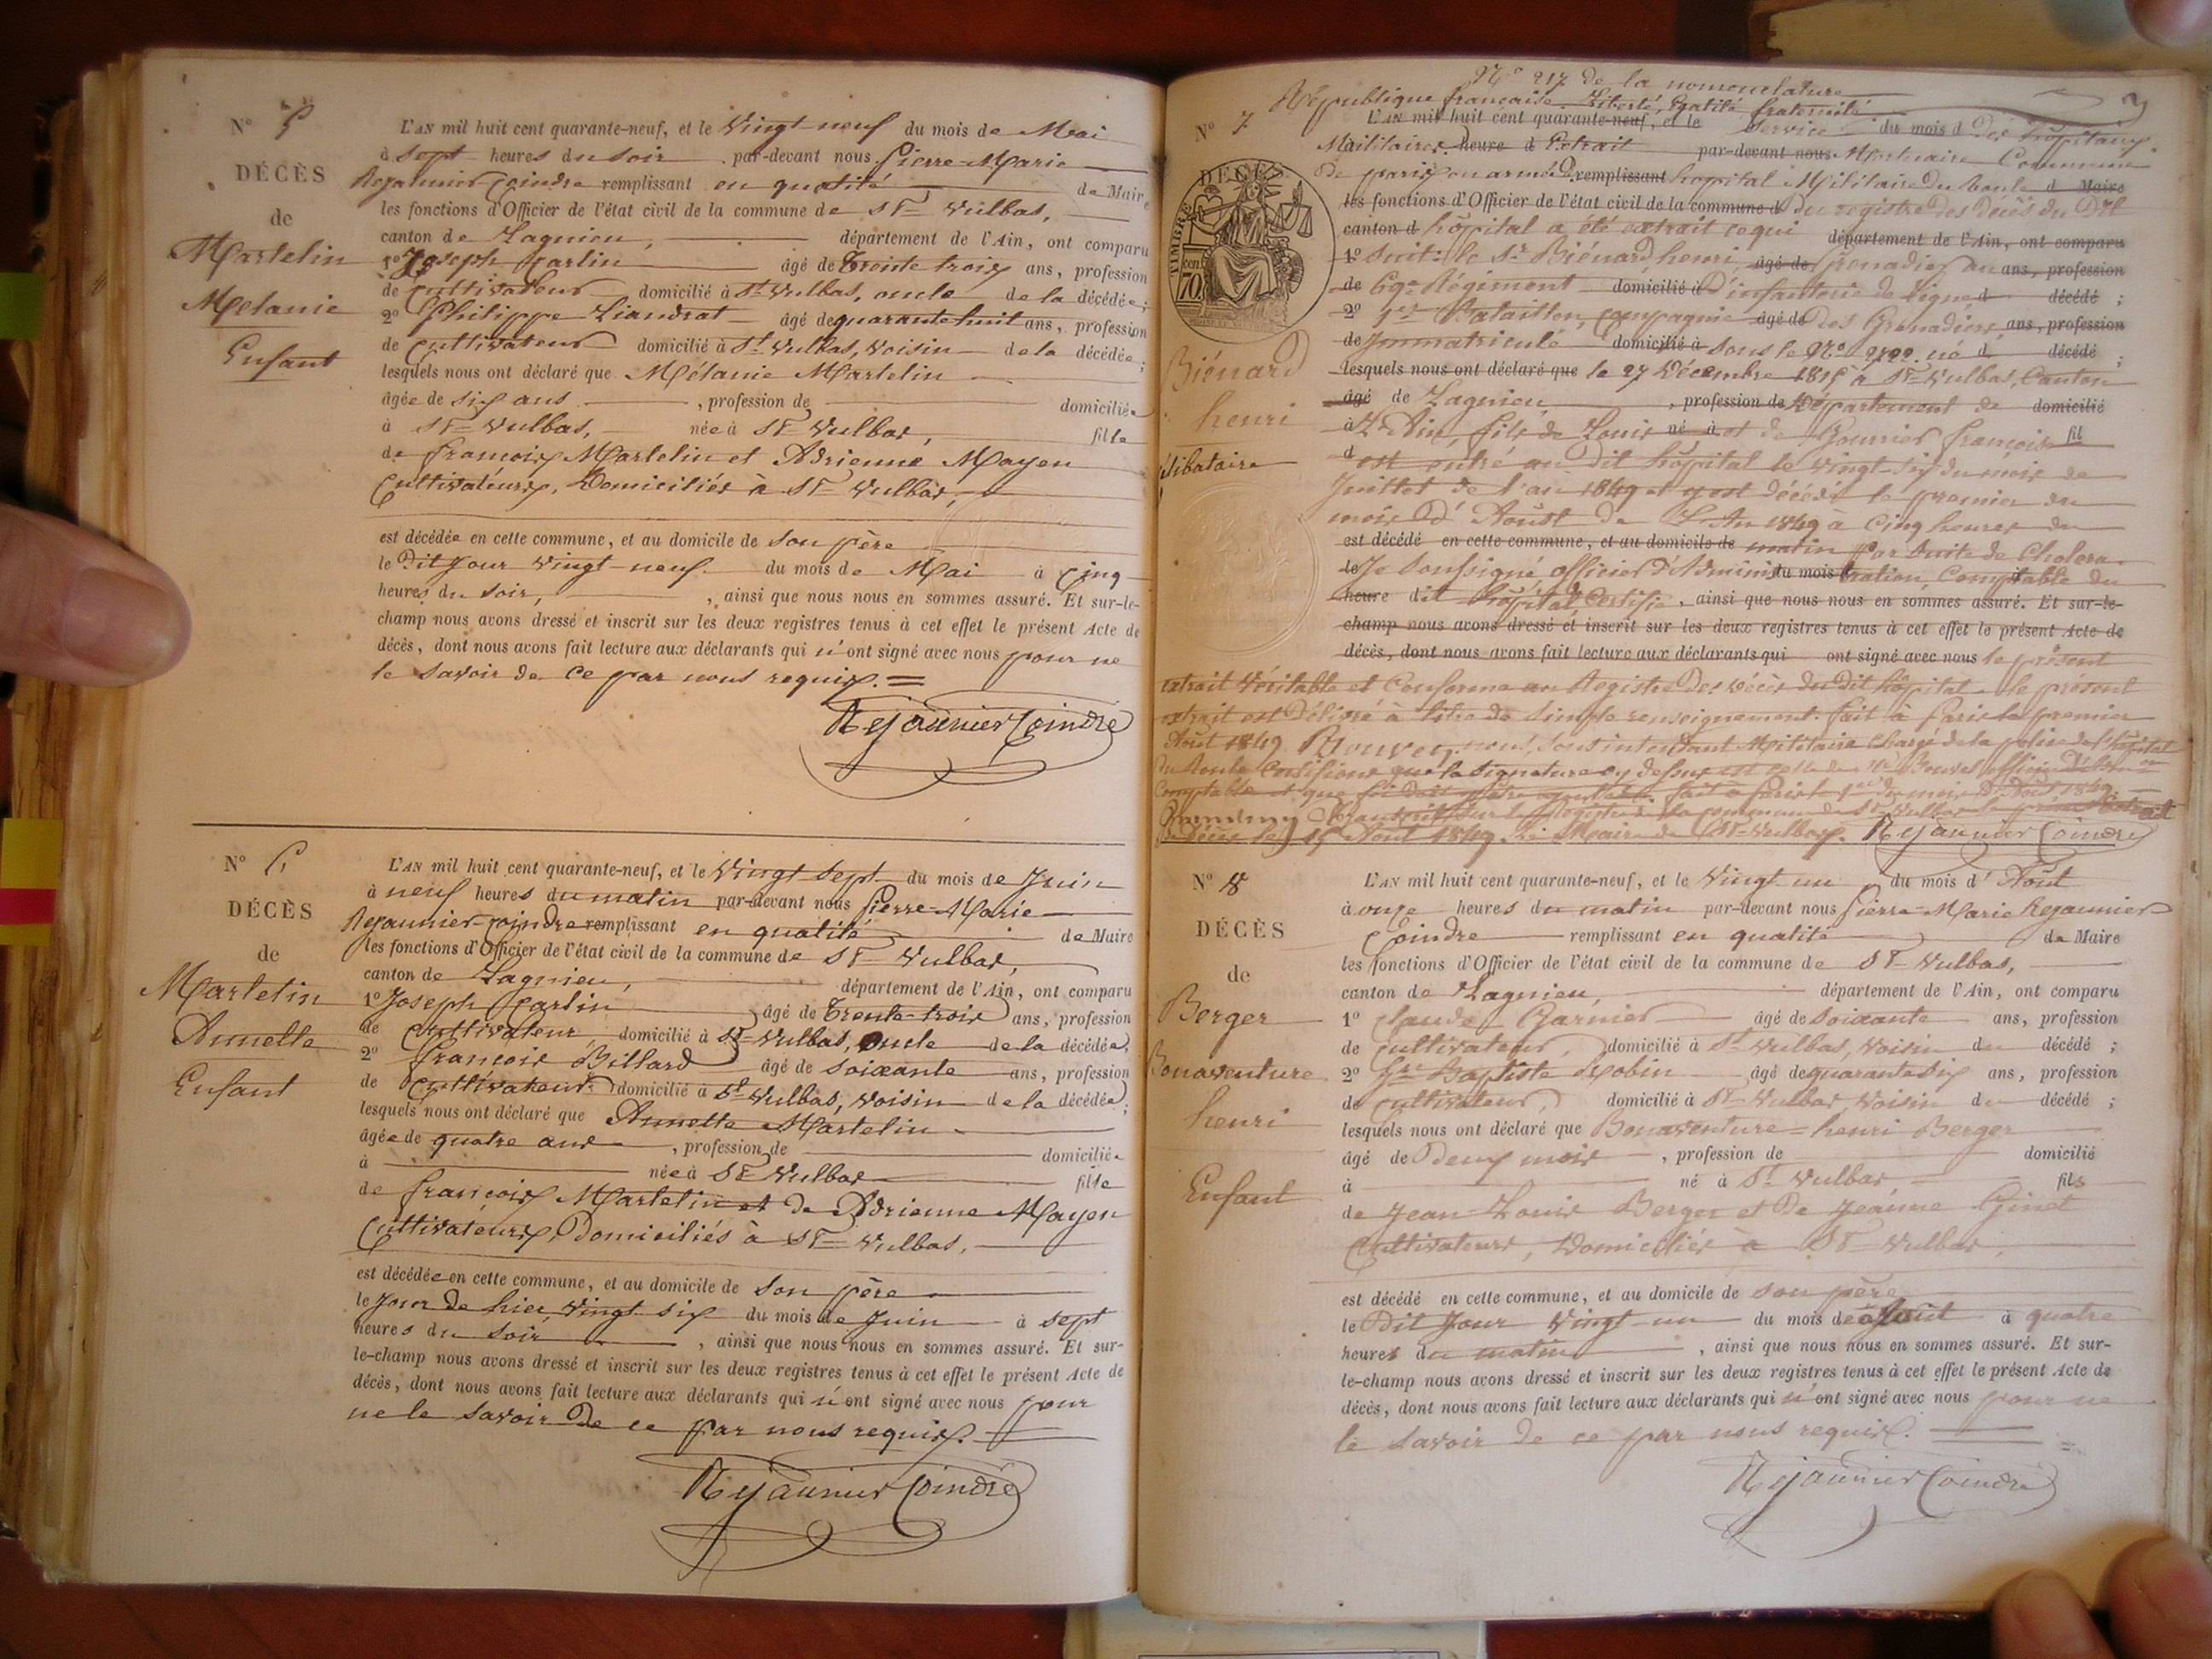 N° 5
DÉCÈS
de
Martelin
Mélanie
Enfant
L'AN mil huit cent quarante-neuf, et le Vingt-neuf du mois de Mai
à sept heures du soir par-devant nous Pierre-Marie
Rejaunier Coindre remplissant en qualité de Maire
les fonctions d'Officier de l'état civil de la commune de St Vulbas,
canton de Lagnieu, département de l'Ain, ont comparu
1° Joseph Carlin âgé de trente trois ans, profession
de Cultivateur domicilié à St Vulbas, oncle de la décédée;
2° Philippe Liandrat âgé de quarante huit ans, profession
de Cultivateur domicilié à St Vulbas, voisin de la décédée;
lesquels nous ont déclaré que Mélanie Martelin
âgée de six ans, profession de domiciliée
à St Vulbas, née à St Vulbas, fille
de françois Martelin et Adrienne Mayen
Cultivateurs, Domiciliés à St Vulbas,
est décédée en cette commune, et au domicile de son père
le Dit Jour Vingt-neuf du mois de Mai à Cinq
heures du soir, , ainsi que nous nous en sommes assuré. Et sur-le-
champ nous avons dressé et inscrit sur les deux registres tenus à cet effet le présent Acte de
décès, dont nous avons fait lecture aux déclarants qui n'ont signé avec nous pour ne
le savoir de ce par nous requis. =
Rejaunier Coindre
N° 6
DÉCÈS
de
Martelin
Annette
Enfant
L'AN mil huit cent quarante-neuf, et le Vingt sept du mois de Juin
à neuf heures du matin par-devant nous Pierre-Marie
Rejaunier-Coindre remplissant en qualité de Maire
les fonctions d'Officier de l'état civil de la commune de St Vulbas,
canton de Lagnieu, département de l'Ain, ont comparu
1° Joseph Carlin âgé de trente-trois ans, profession
de Cultivateur, domicilié à St Vulbas, oncle de la décédée;
2° françois Billard âgé de soixante ans, profession
de Cultivateur domicilié à St Vulbas, voisin de la décédée;
lesquels nous ont déclaré que Annette Martelin
âgée de quatre ans, profession de domiciliée
à née à St Vulbas fille
de françois Martelin et de Adrienne Mayen
Cultivateurs, Domiciliés à St Vulbas,
est décédée en cette commune, et au domicile de son père
le Jour de hier Vingt six du mois de Juin à sept
heures du soir, ainsi que nous nous en sommes assuré. Et sur-
le-champ nous avons dressé et inscrit sur les deux registres tenus à cet effet le présent Acte de
décès, dont nous avons fait lecture aux déclarants qui n'ont signé avec nous pour
ne le savoir de ce par nous requis.
Rejaunier Coindre
3
N° 217 de la nomenclature
République française. Liberté, Egalité fraternité
N° 7
L'AN mil huit cent quarante-neuf, et le Service du mois d Des hôpitaux
Militaires heure d Extrait par-devant nous Mortuaire Commune
de paris remplissant hopital Militaire du Roule d Maire
les fonctions d'Officier de l'état civil de la commune d Du registre des décès du Dit
canton d hôpital a été extrait ce qui département de l'Ain, ont comparu
1° Suit: le Sr Biénard henri, âgé de Grenadier au ans, profession
de 69e Régiment domicilié à D'infanterie de ligne d décédé;
2° 1er Bataillon, Compagnie âgé de Des Grenadiers, ans, profession
de Immatriculé domicilié à sous le N° né d décédé;
lesquels nous ont déclaré que le 27 Décembre 1815 à St Vulbas, Canton
âgé de Lagnieu, profession de Département de domicilié
à L'Ain, fils de Louis né à et de françoise fil
d est entré au dit hôpital le Vingt-six du mois de
Juillet de l'an 1849 et y est décédé le premier du
mois D'Août De L'An 1849 à Cinq heures du
est décédé en cette commune, et au domicile de matin par suite de Choléra
le Je Soussigné, officier d'Adminis du mois tration, Comptable du
heure dit hôpital, Certifie, ainsi que nous nous en sommes assuré. Et sur-le-
champ nous avons dressé et inscrit sur les deux registres tenus à cet effet le présent Acte de
décès, dont nous avons fait lecture aux déclarants qui ont signé avec nous le présent
extrait Véritable et Conforme au Registre Des décès du dit hôpital. le présent
extrait est Délivré à titre de simple renseignement. fait à Paris le premier
Août 1849 nous, sous intendant Militaire Chargé de la police de l'hôpital
du Roule Certifions que la signature cy dessus est celle de Mr officier
Comptable et que foi doit fait à Paris le 1er du mois D'Août 1849.
sur le Registre de la commune de St Vulbas le présent Extrait
de Décès le 15 Août 1849. Le Maire de St Vulbas. Rejaunier Coindre
DÉCÈS
TIMBRE
70 cen.
Biénard
henri
Célibataire
N° 8
DÉCÈS
de
Berger
Bonaventure
henri
Enfant
L'AN mil huit cent quarante-neuf, et le Vingt un du mois d'Août
à onze heures du matin par-devant nous Pierre-Marie Rejaunier
Coindre remplissant en qualité de Maire
les fonctions d'Officier de l'état civil de la commune de St Vulbas,
canton de Lagnieu, département de l'Ain, ont comparu
1° Claude Garnier âgé de soixante ans, profession
de Cultivateur, domicilié à St Vulbas, voisin du décédé;
2° Jn Baptiste Robin âgé de quarante six ans, profession
de Cultivateur, domicilié à St Vulbas, voisin du décédé;
lesquels nous ont déclaré que Bonaventure-henri Berger
âgé de Deux mois, profession de domicilié
à né à St Vulbas fils
de Jean-Louis Berger et De Jeanne Ginet
Cultivateurs, Domiciliés à St Vulbas,
est décédé en cette commune, et au domicile de son père
le Dit Jour Vingt-un du mois de Août à quatre
heures du matin, ainsi que nous nous en sommes assuré. Et sur-
le-champ nous avons dressé et inscrit sur les deux registres tenus à cet effet le présent Acte de
décès, dont nous avons fait lecture aux déclarants qui n'ont signé avec nous pour ne
le savoir de ce par nous requis.
Rejaunier Coindre